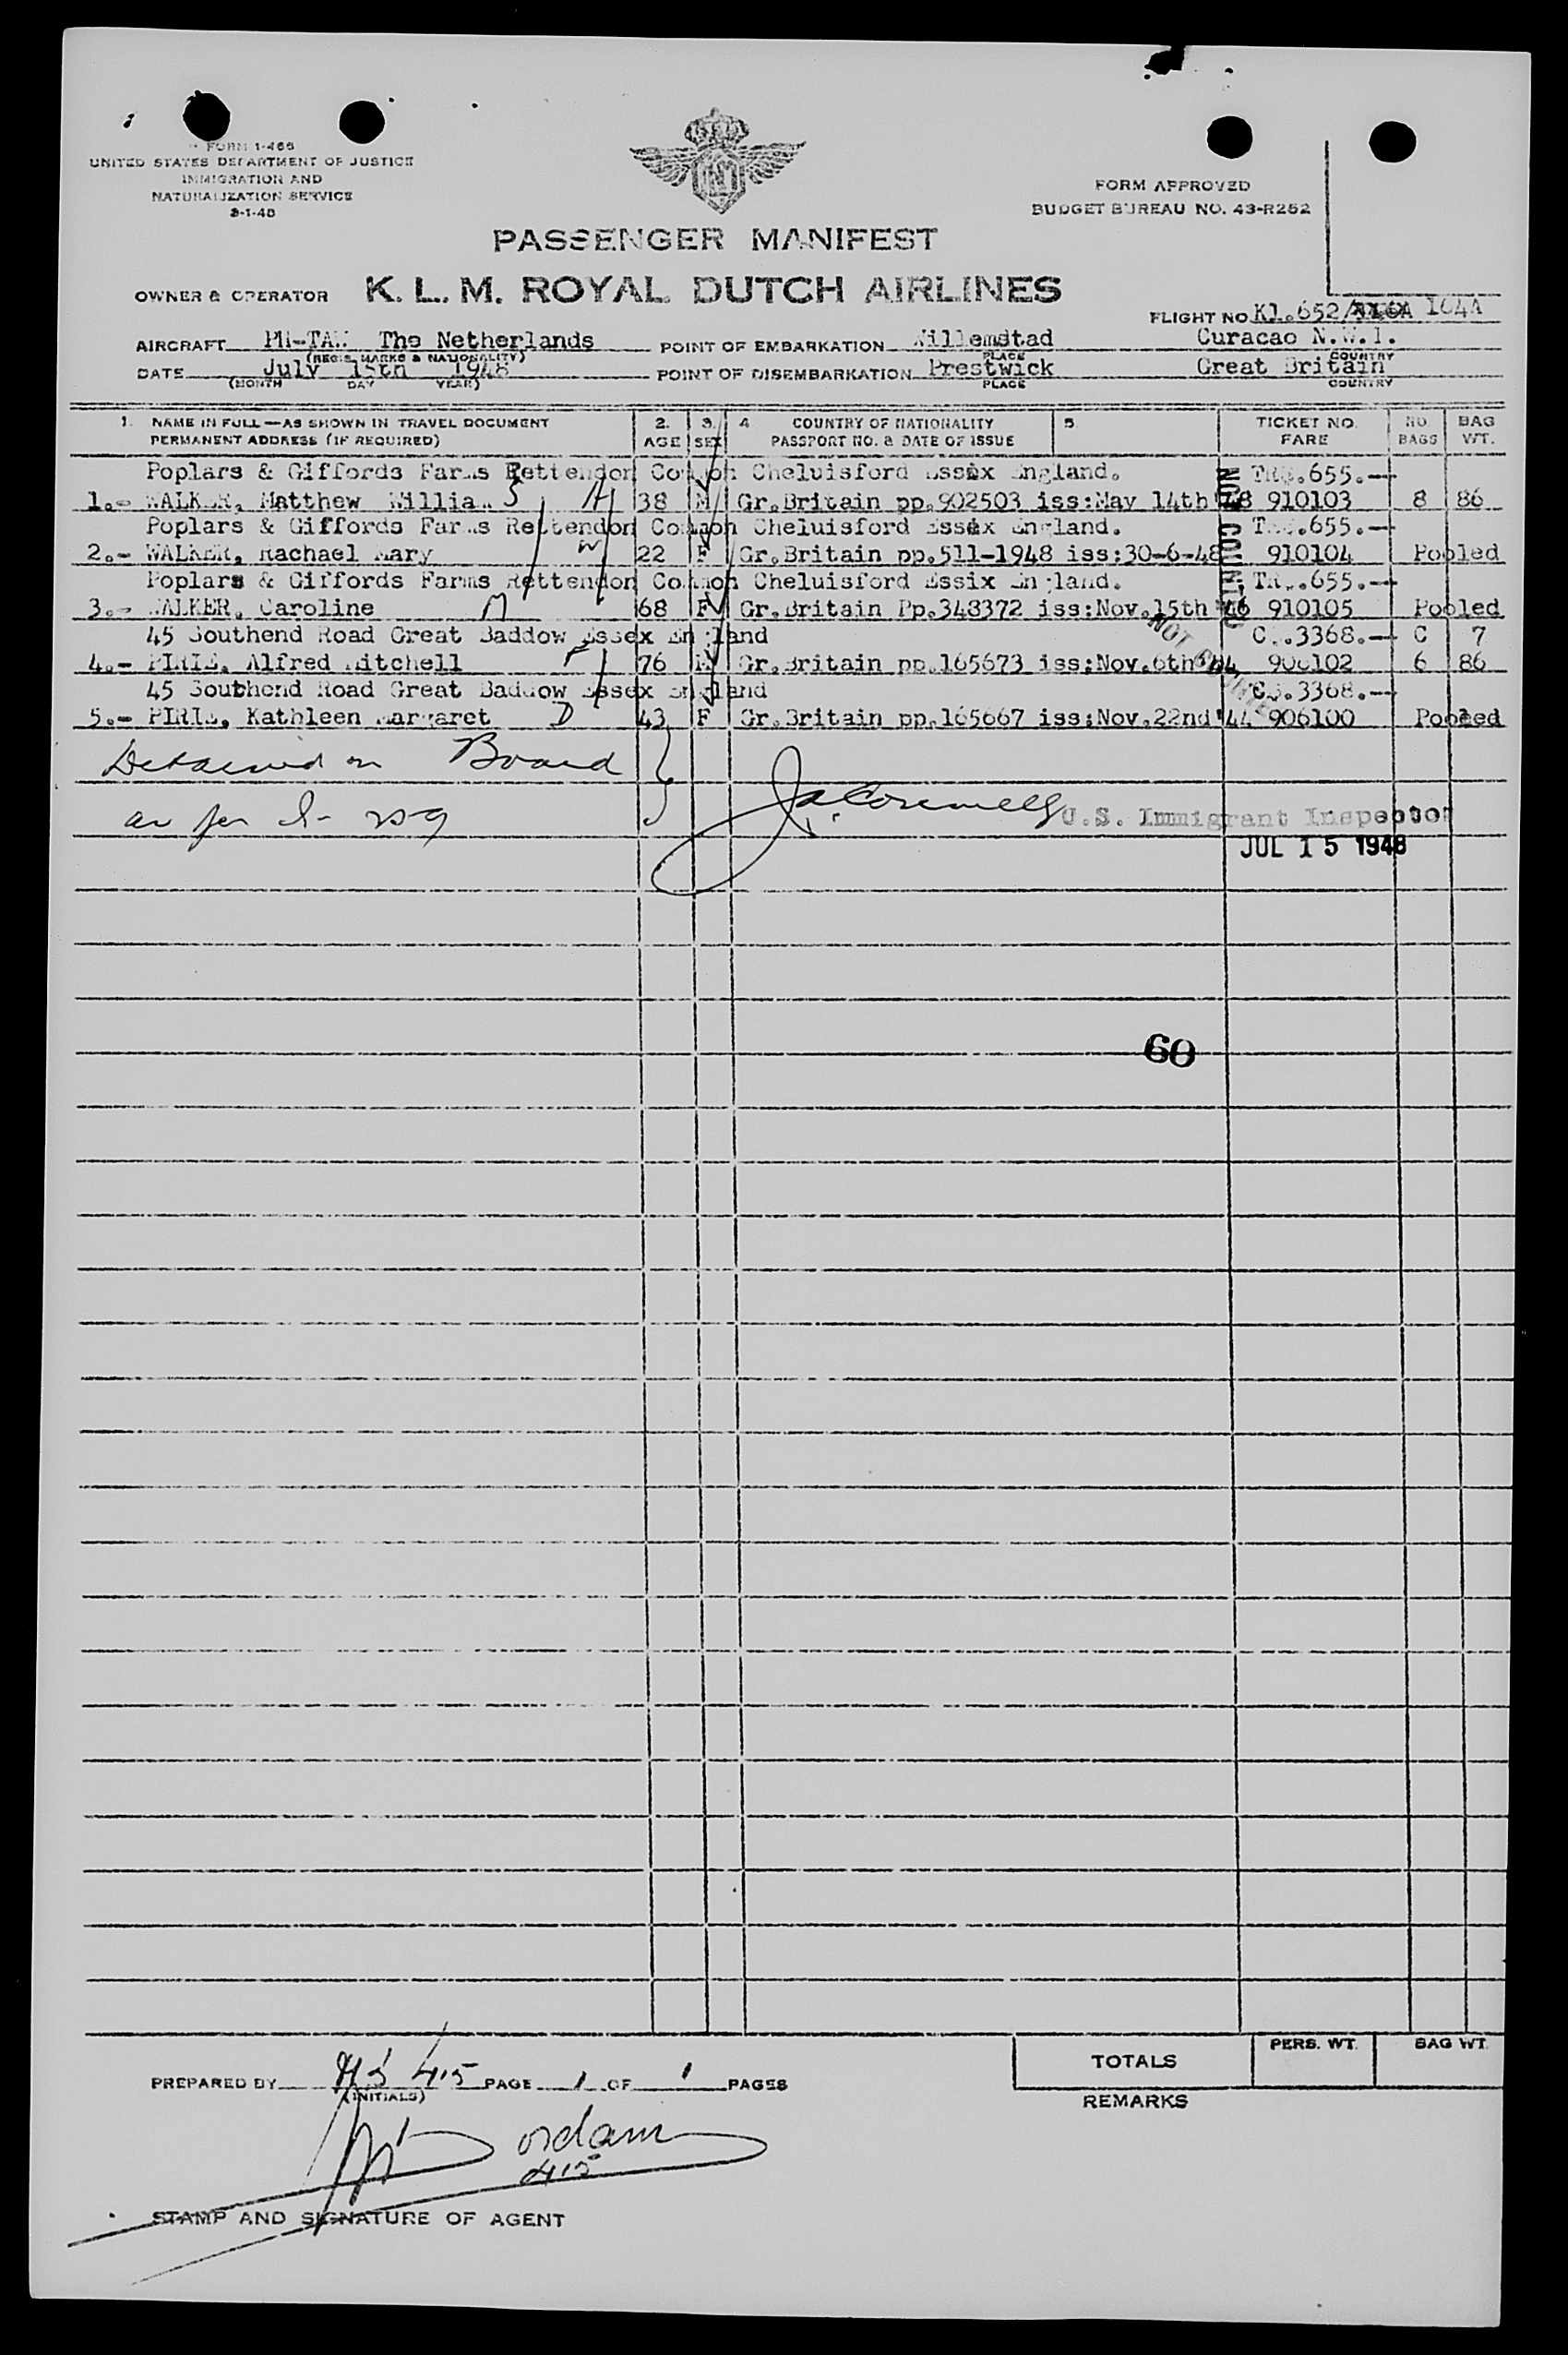 FORM I-466
UNITED STATES DEPARTMENT OF JUSTICE
IMMIGRATION AND
NATURALIZATION SERVICE
FORM APPROVED
BUDGET BUREAU NO. 43-R252
PASSENGER MANIFEST
OWNER & OPERATOR K. L. M. ROYAL DUTCH AIRLINES
FLIGHT NO. Kl.652/ 164A
AIRCRAFT PH-TAW The Netherlands POINT OF EMBARKATION Willemstad Curacao N.W.I.
(REGIS. MARKS & NATIONALITY) PLACE COUNTRY
DATE July 15th 1948 POINT OF DISEMBARKATION Prestwick Great Britain
(MONTH DAY YEAR) PLACE COUNTRY
1. NAME IN FULL—AS SHOWN IN TRAVEL DOCUMENT 2. 3. 4 COUNTRY OF NATIONALITY 5 TICKET NO. NO. BAG
PERMANENT ADDRESS (IF REQUIRED) AGE SEX PASSPORT NO. & DATE OF ISSUE FARE BAGS WT.
Poplars & Giffords Farms Rettendon Common Cheluisford Essix England. 655.—
1.- WALKER, Matthew William S H 38 M Gr.Britain pp.902503 iss:May 14th '48 910103 8 86
Poplars & Giffords Farms Rettendon Common Cheluisford Essix England. 655.—
2.- WALKER, Rachael Mary W 22 F Gr.Britain pp.511-1948 iss:30-6-48 910104 Pooled
Poplars & Giffords Farms Rettendon Common Cheluisford Essix England. 655.—
3.- WALKER, Caroline M 68 F Gr.Britain Pp.348372 iss:Nov.15th '46 910105 Pooled
45 Southend Road Great Baddow Essex England 3368.— C 7
4.- PIRIE, Alfred Mitchell F 76 M Gr.Britain pp.165673 iss:Nov.6th '44 906102 6 86
45 Southend Road Great Baddow Essex England 3368.—
5.- PIRIE, Kathleen Margaret D 43 F Gr.Britain pp.165667 iss:Nov.22nd '44 906100 Pooled
NON COUNTED
NOT
Detained on Board
as per I-259
U.S. Immigrant Inspector
JUL 15 1948
60
TOTALS PERS. WT. BAG WT.
PREPARED BY 415 PAGE 1 OF 1 PAGES
(INITIALS)
REMARKS
415
STAMP AND SIGNATURE OF AGENT